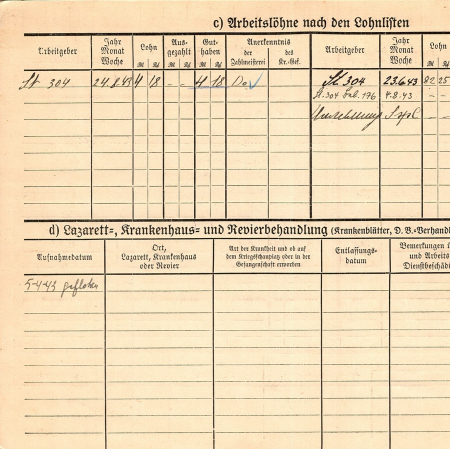 c) Arbeitslöhne nach den Lohnlisten
Arbeitgeber Jahr Monat Woche Lohn Aus- gezahlt Gut- haben Anerkenntnis Arbeitgeber Jahr Monat Woche Lohn
ℛℳ ₰ ℛℳ ₰ ℛℳ ₰ der Zahlmeisterei des Kr.-Gef. ℛℳ ₰
St 304 24.8.43 4 18 - - 4 18 Do. St. 304 23.6.43 82 25
St. 304 196 4.8.43 - -
d) Lazarett-, Krankenhaus- und Revierbehandlung (Krankenblätter, D. B.-Verhandl
Aufnahmedatum Ort, Lazarett, Krankenhaus oder Revier Art der Krankheit und ob auf dem Kriegsschauplatz oder in der Gefangenschaft erworben Entlassungs- datum Bemerkungen ü und Arbeits Dienstbeschädi
5-4-43